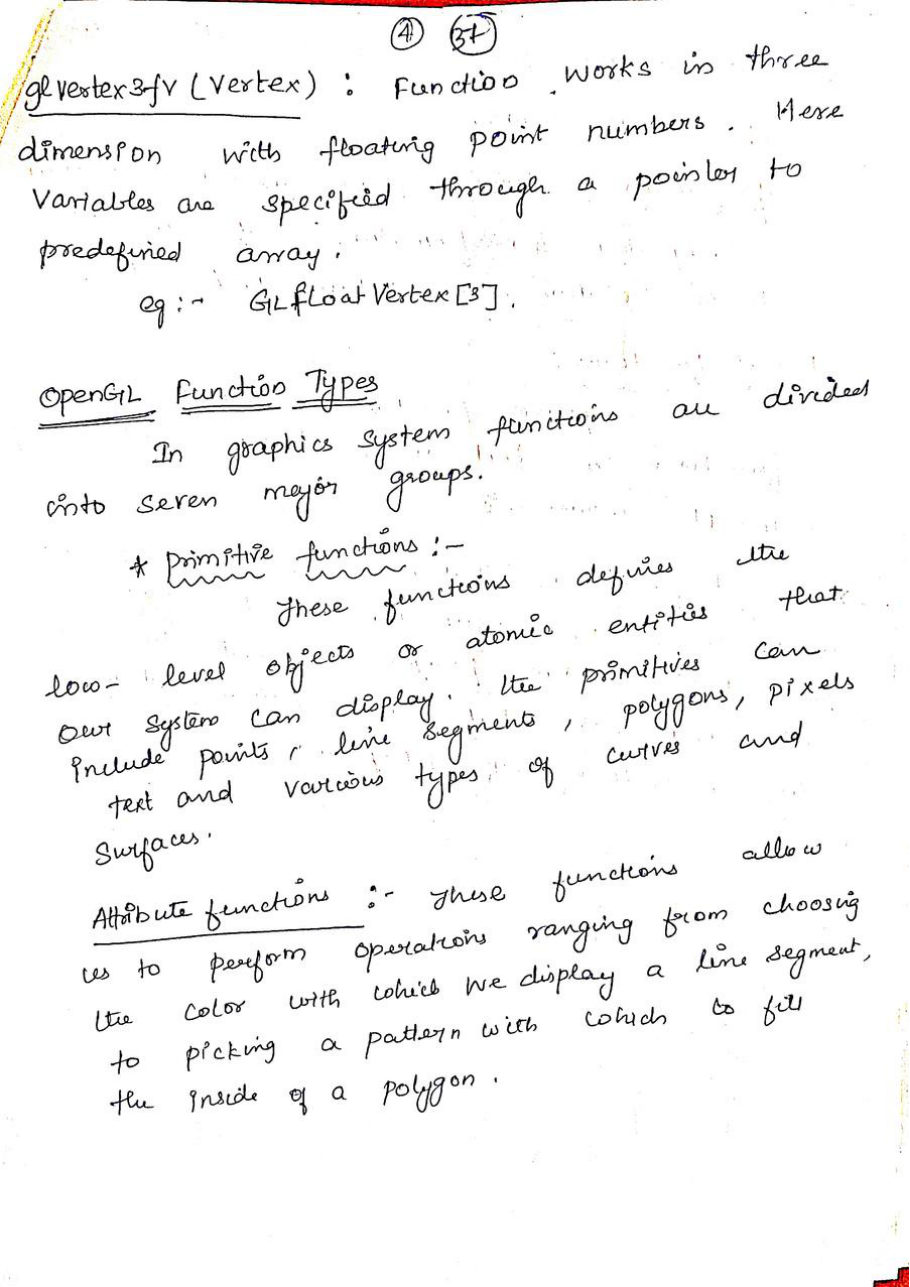 4 37
glvertex3fv (Vertex) : Function works in three
dimension with floating point numbers. Here
Variables are specified through a pointer to
predefined array.
eg :- GLfloat Vertex [3].
OpenGL Function Types
In graphics system functions are divided
into seven major groups.
* Primitive functions :-
These functions defines the
low-level objects or atomic entities that
our system can display. The primitives can
include points, line segments, polygons, pixels
text and various types of curves and
Surfaces.
Attribute functions :- These functions allow
us to perform operations ranging from choosing
the color with which we display a line segment,
to picking a pattern with which to fill
the inside of a polygon.